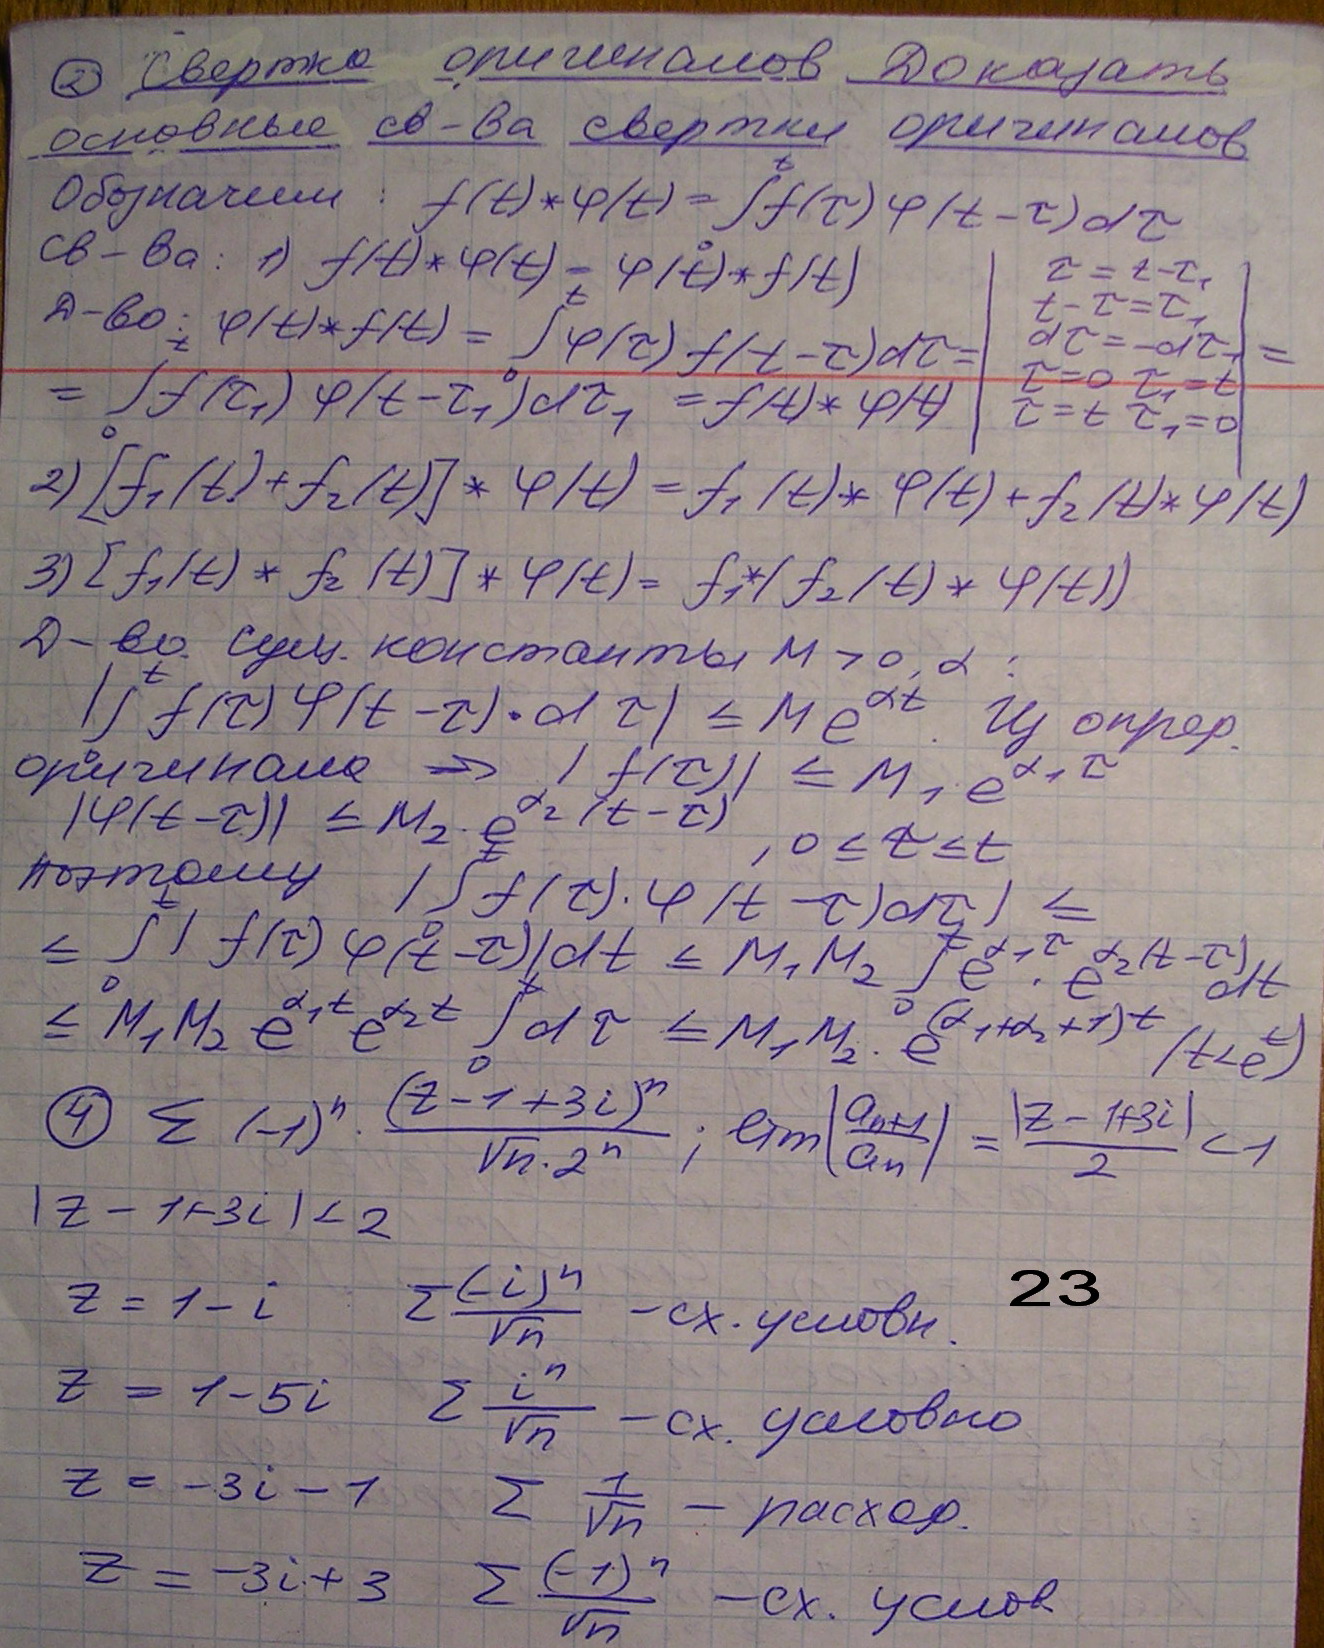 ② Свертка оригиналов Доказать
основные св-ва свертки оригиналов
Обозначим: f(t)*φ(t)=∫₀ᵗf(τ)φ(t-τ)dτ
Св-ва: 1) f(t)*φ(t)=φ(t)*f(t)
Д-во: φ(t)*f(t)=∫₀ᵗφ(τ)f(t-τ)dτ=| τ=t-τ₁ t-τ=τ₁ dτ=-dτ₁ τ=0 τ₁=t τ=t τ₁=0 |=
=∫₀ᵗf(τ₁)φ(t-τ₁)dτ₁=f(t)*φ(t)
2) [f₁(t)+f₂(t)]*φ(t)=f₁(t)*φ(t)+f₂(t)*φ(t)
3) [f₁(t)*f₂(t)]*φ(t)=f₁*(f₂(t)*φ(t))
Д-во. Сущ. константы M>0, α:
|∫₀ᵗf(τ)φ(t-τ)·dτ|≤Me^{αt}. Из опред.
оригинала => |f(τ)|≤M₁·e^{α₁τ}
|φ(t-τ)|≤M₂·e^{α₂(t-τ)}, 0≤τ≤t
поэтому |∫₀ᵗf(τ)·φ(t-τ)dτ|≤
≤∫₀ᵗ|f(τ)φ(t-τ)|dt≤M₁M₂∫₀ᵗe^{α₁τ}·e^{α₂(t-τ)}dt
≤M₁M₂e^{α₁t}e^{α₂t}∫₀ᵗdτ≤M₁M₂·e^{(α₁+α₂+1)t} (t<eᵗ)
④ Σ(-1)ⁿ·(z-1+3i)ⁿ/(√n·2ⁿ); lim|aₙ₊₁/aₙ|=|z-1+3i|/2<1
|z-1+3i|<2
z=1-i Σ(-i)ⁿ/√n -сх. условн.
23
z=1-5i Σiⁿ/√n -сх. условно
z=-3i-1 Σ1/√n - расход.
z=-3i+3 Σ(-1)ⁿ/√n -сх. услов